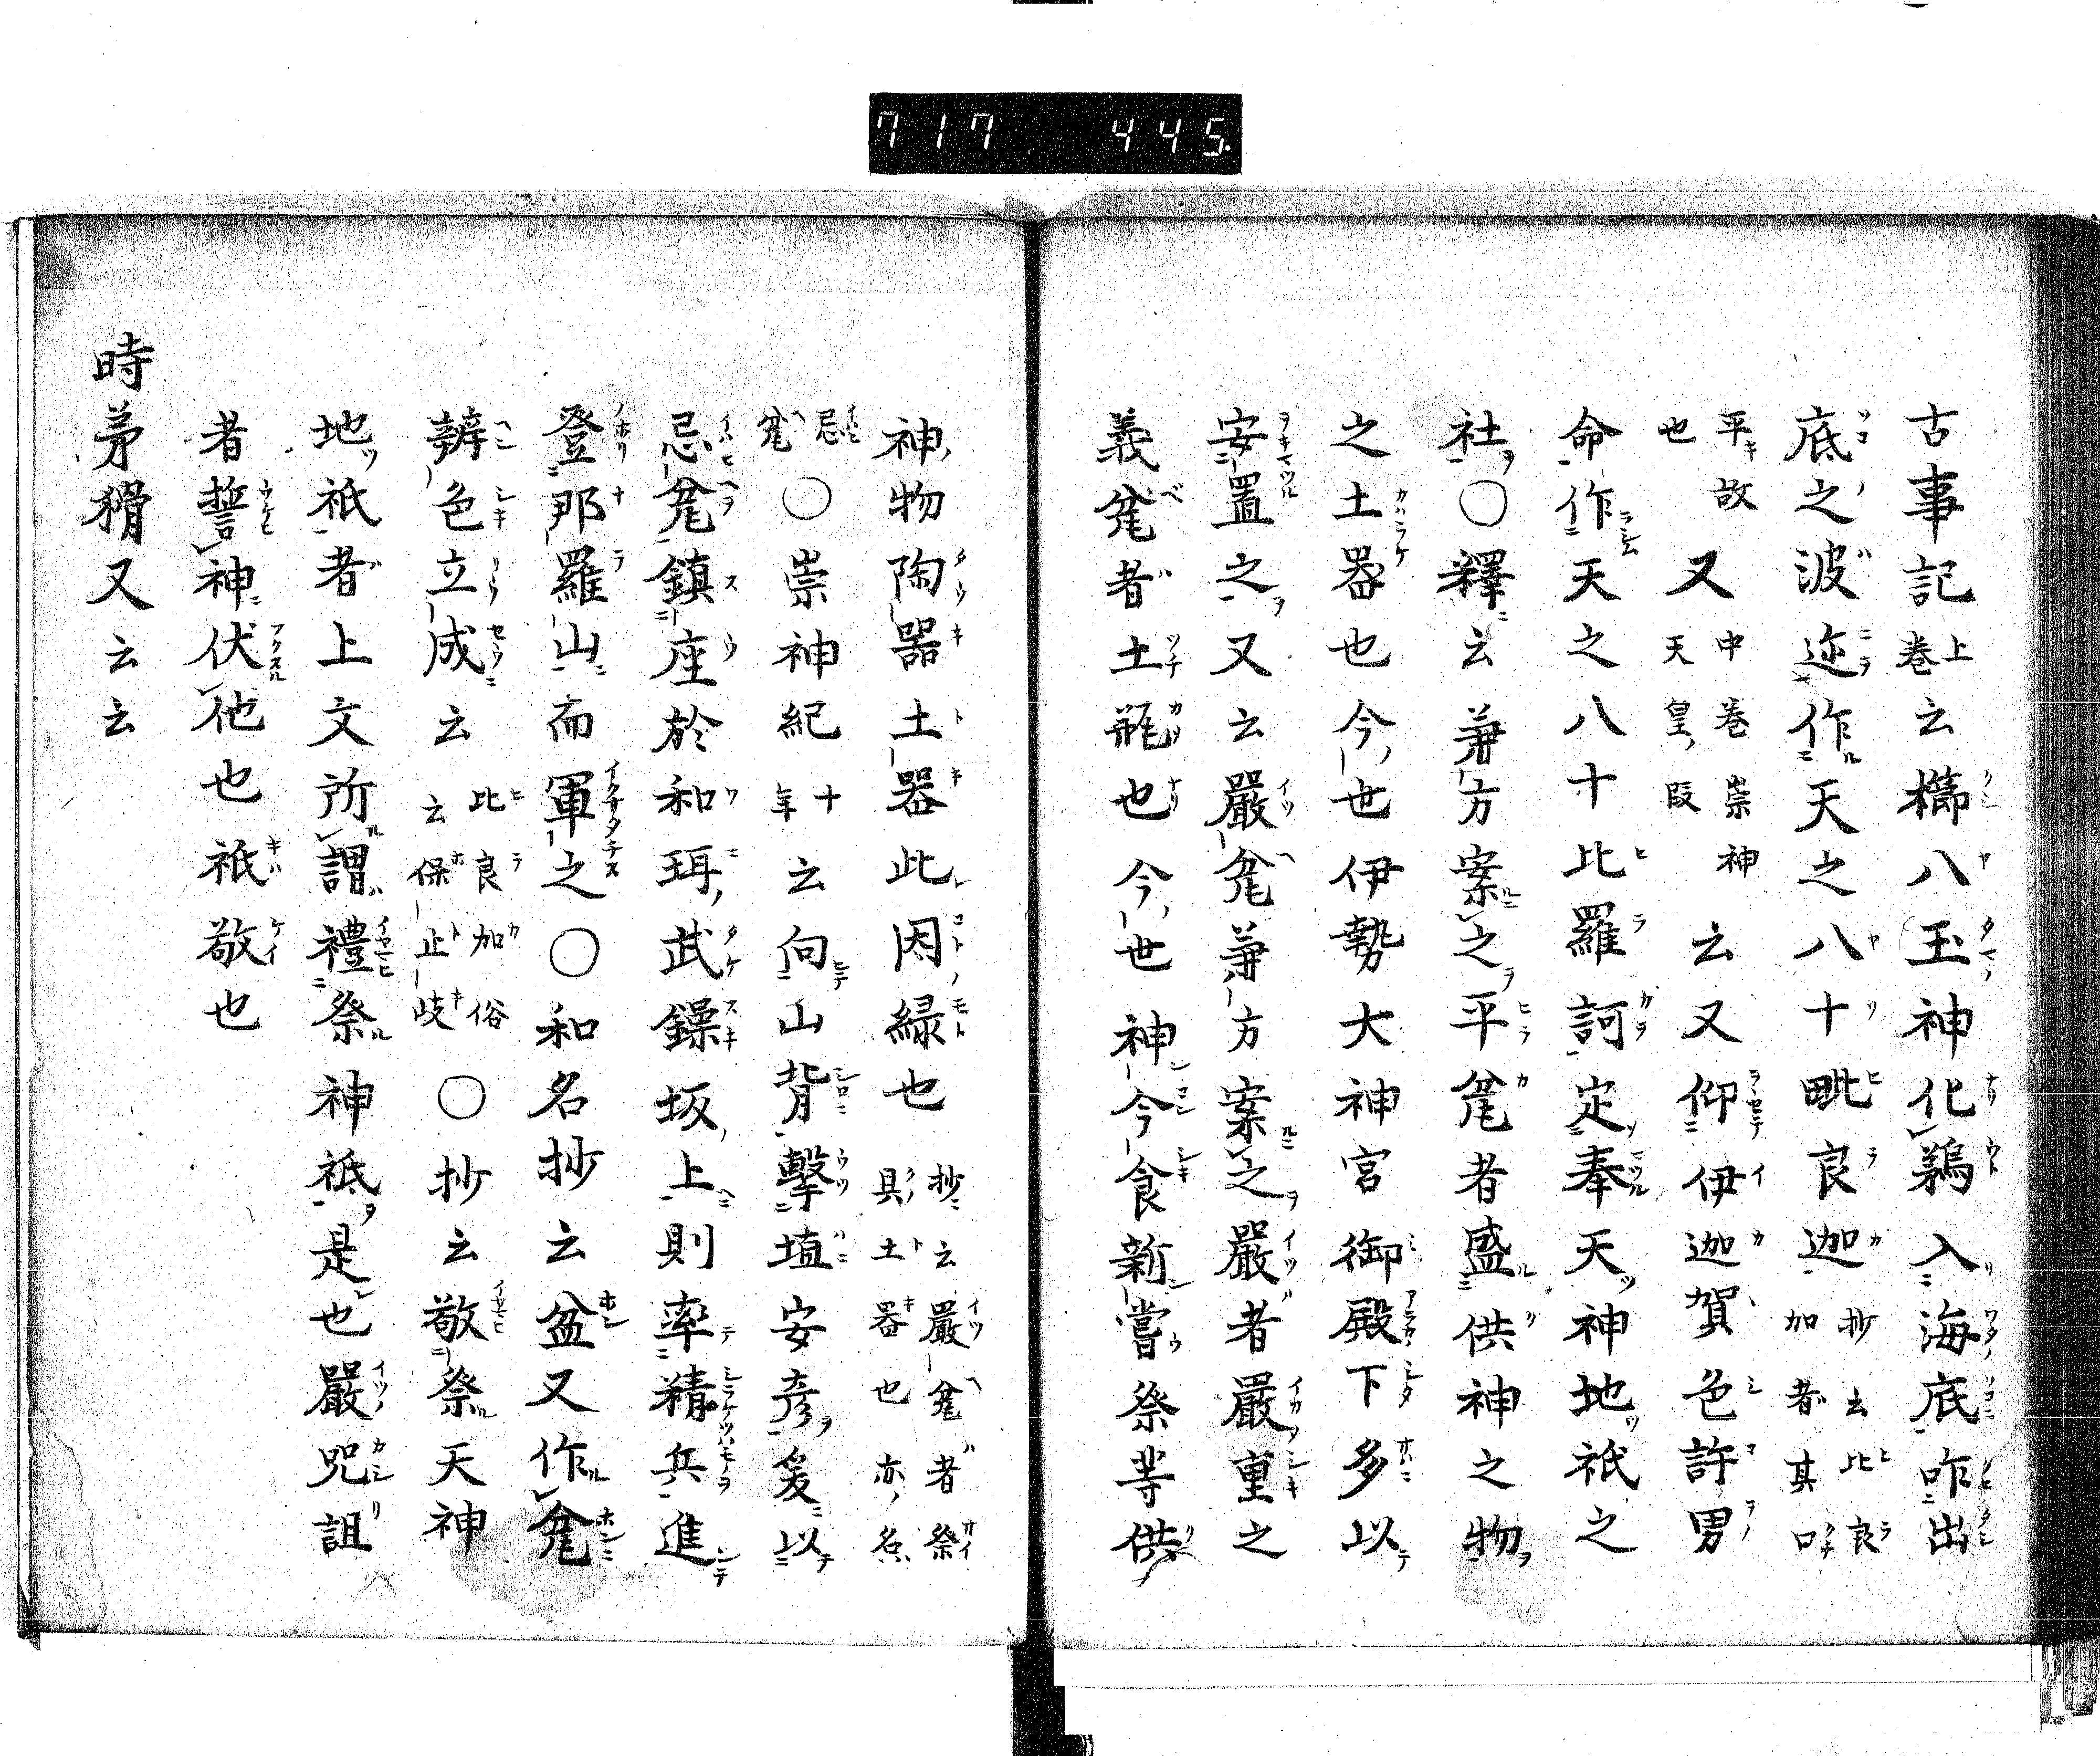 717 445
古事記上巻云櫛八玉神化鵜入海底咋出
底之波迩作天之八十毗良迦抄云比良加者其口
平故也又中巻崇神天皇段云又仰伊迦賀色許男
命作天之八十比羅訶定奉天神地祇之
社○釋云兼方案之平瓮者盛供神之物
之土器也今世伊勢大神宮御殿下多以
安置之又云嚴瓮兼方案之嚴者嚴重之
義瓮者土瓶也今世神今食新嘗祭等供
神物陶器土器此因緑也抄云嚴瓮者祭具土器也亦名
忌瓮○崇神紀十年云向山背擊埴安彦爰以
忌瓮鎮座於和珥武鐰坂上則率精兵進
登那羅山而軍之○和名抄云盆又作瓫
辨色立成云比良加俗云保止岐○抄云敬祭天神
地祇者上文所謂禮祭神祇是也嚴呪詛
者誓神伏他也祇敬也
時弟猾又云云